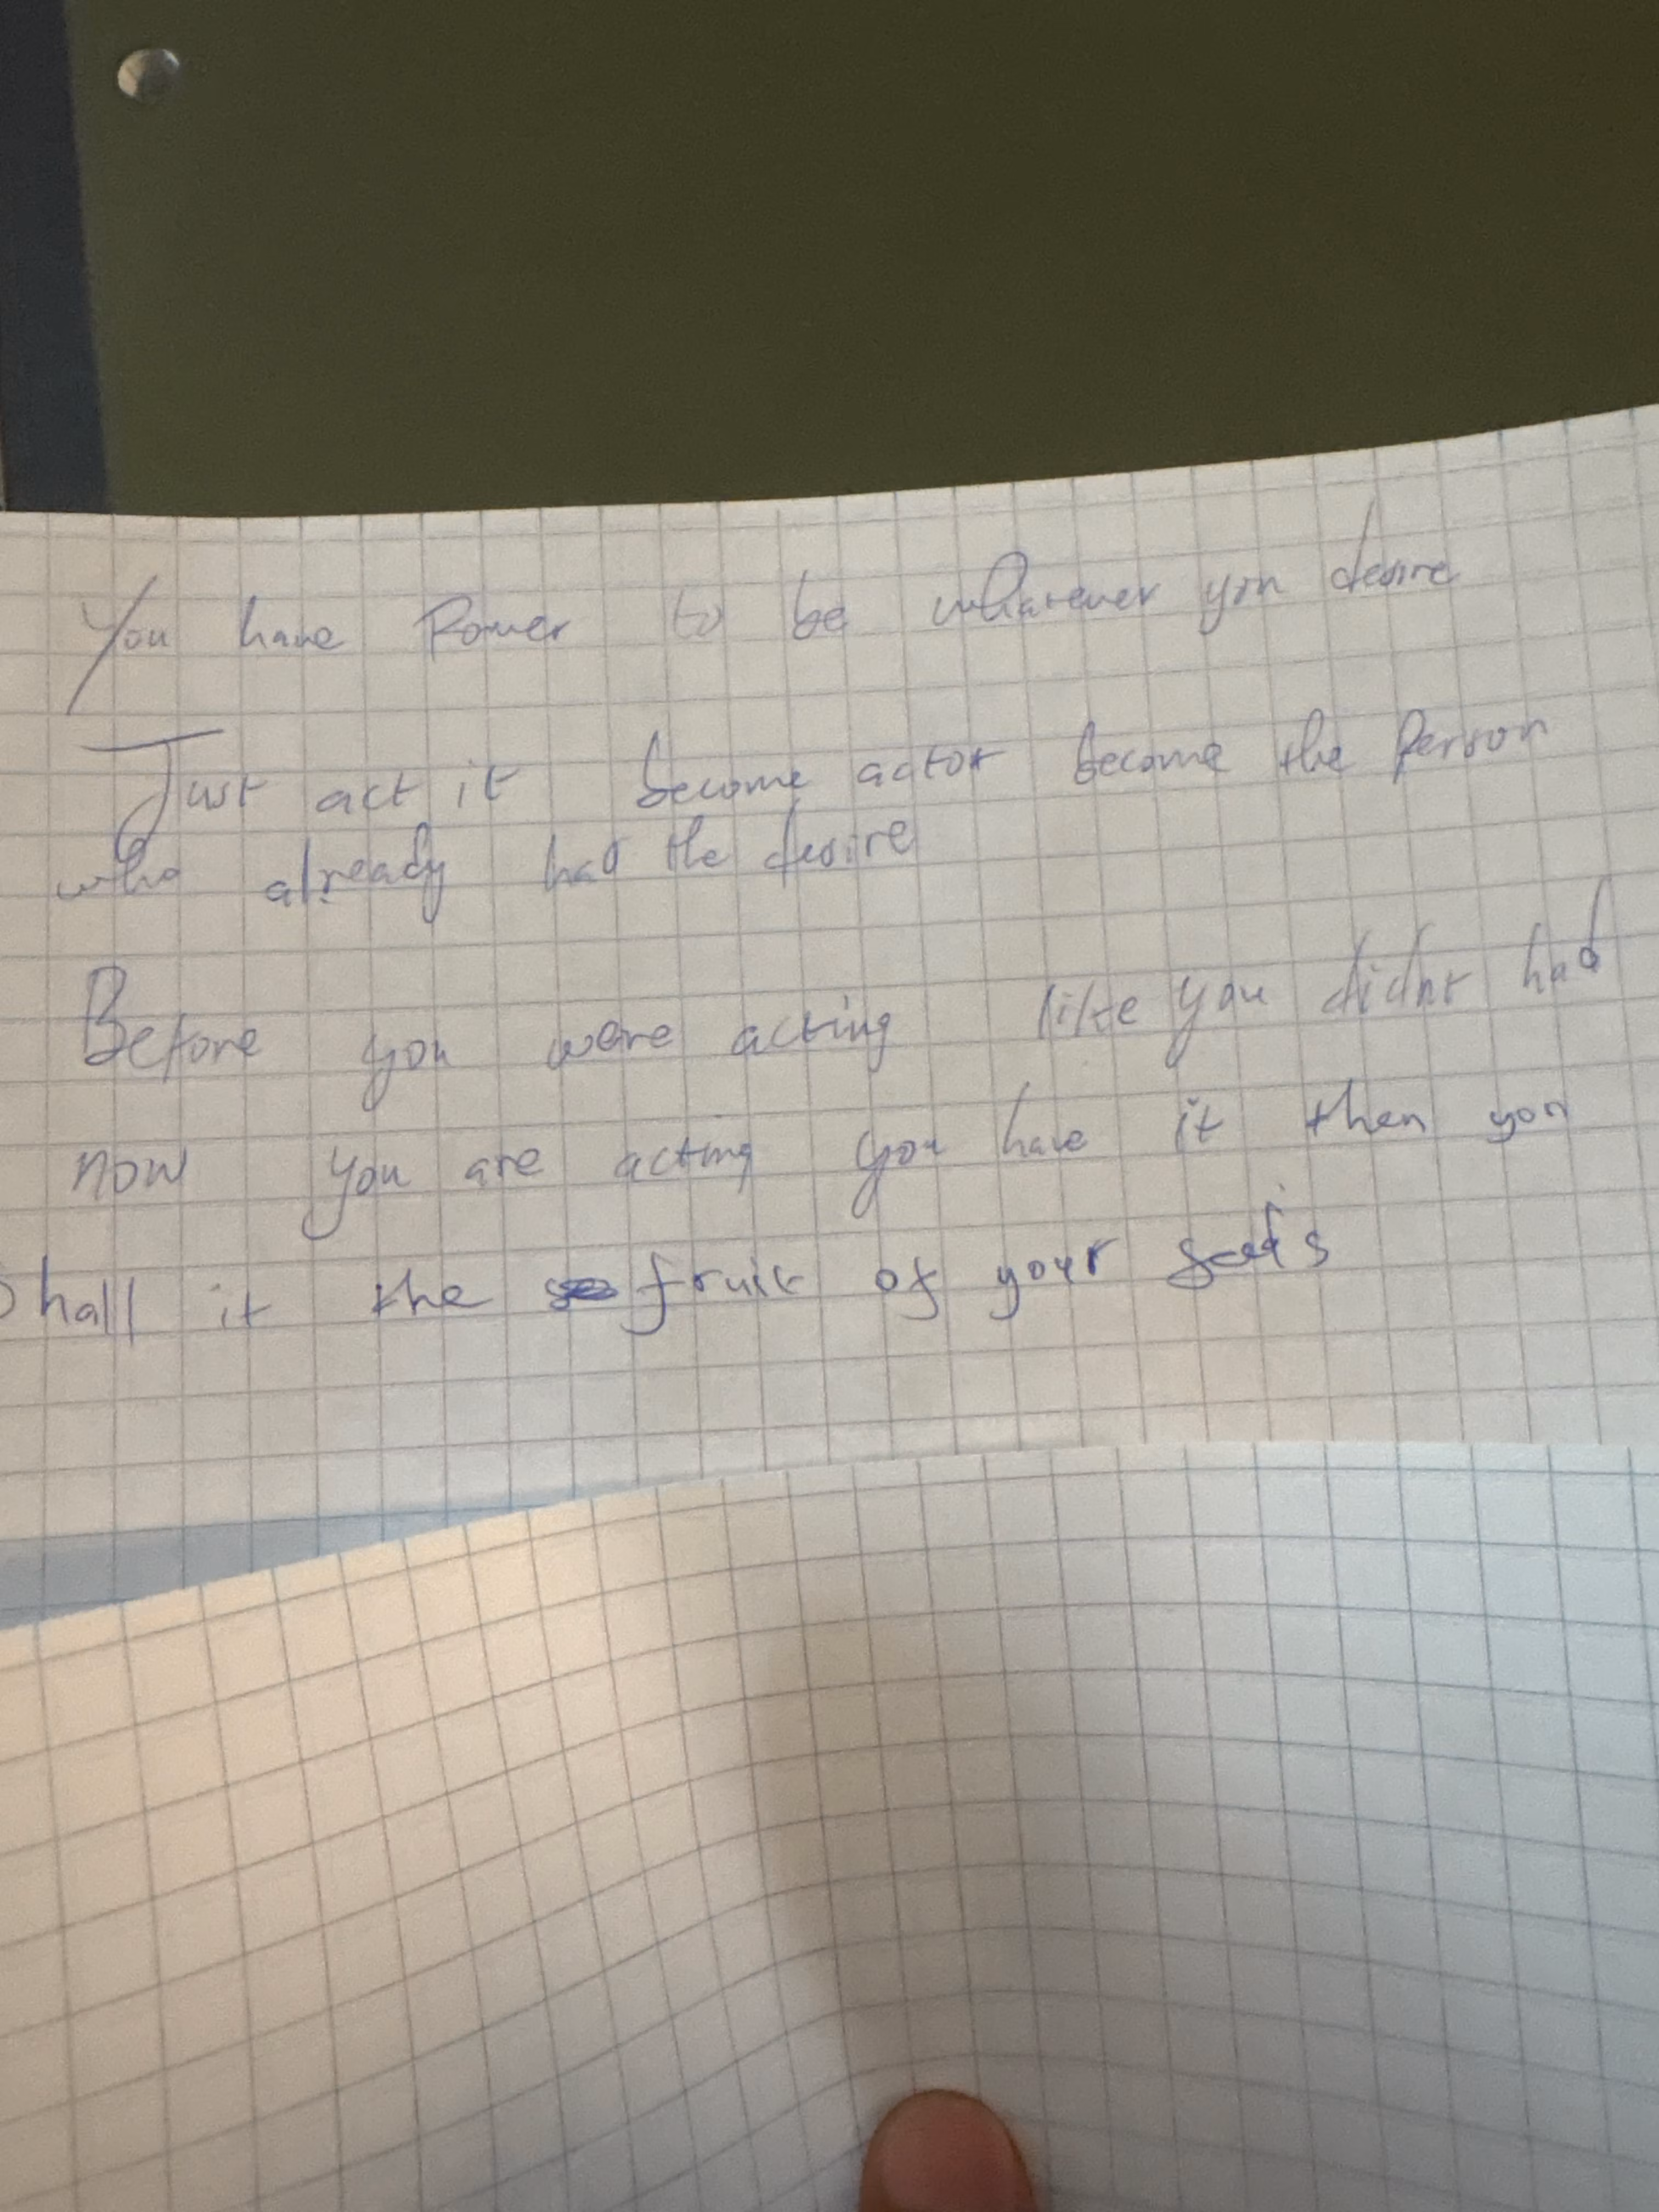 You have Power to be whatever you desire
Just act it become actor become the Person
who already had the desire
Before you were acting like you didnt had
now you are acting you have it then you
Shall it the fruit of your seeds